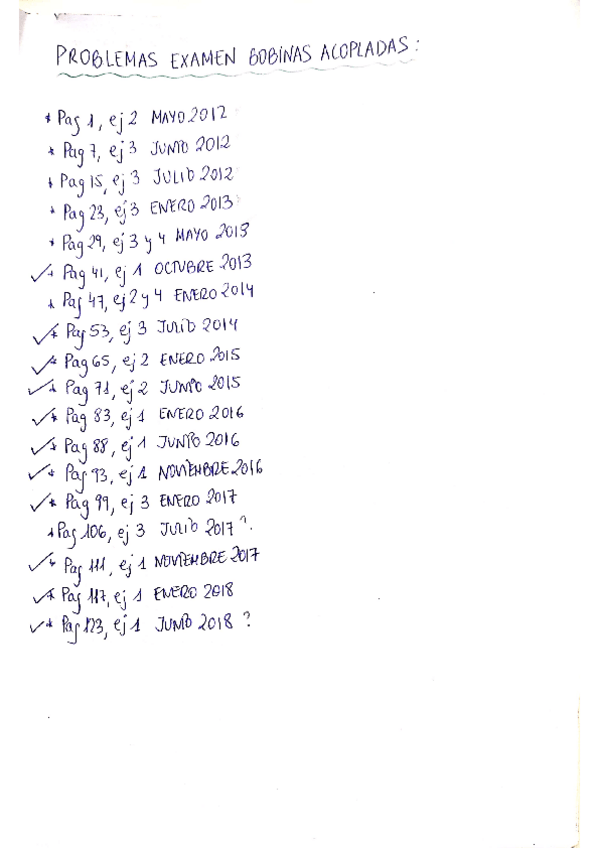 PROBLEMAS EXAMEN BOBINAS ACOPLADAS:
* Pag 1, ej 2 MAYO 2012
* Pag 7, ej 3 JUNIO 2012
* Pag 15, ej 3 JULIO 2012
* Pag 23, ej 3 ENERO 2013
* Pag 29, ej 3 y 4 MAYO 2013
✓* Pag 41, ej 1 OCTUBRE 2013
* Pag 47, ej 2 y 4 ENERO 2014
✓* Pag 53, ej 3 JULIO 2014
✓* Pag 65, ej 2 ENERO 2015
✓* Pag 71, ej 2 JUNIO 2015
✓* Pag 83, ej 1 ENERO 2016
✓* Pag 88, ej 1 JUNIO 2016
✓* Pag 93, ej 1 NOVIEMBRE 2016
✓* Pag 99, ej 3 ENERO 2017
* Pag 106, ej 3 JULIO 2017 ?.
✓* Pag 111, ej 1 NOVIEMBRE 2017
✓* Pag 117, ej 1 ENERO 2018
✓* Pag 123, ej 1 JUNIO 2018 ?